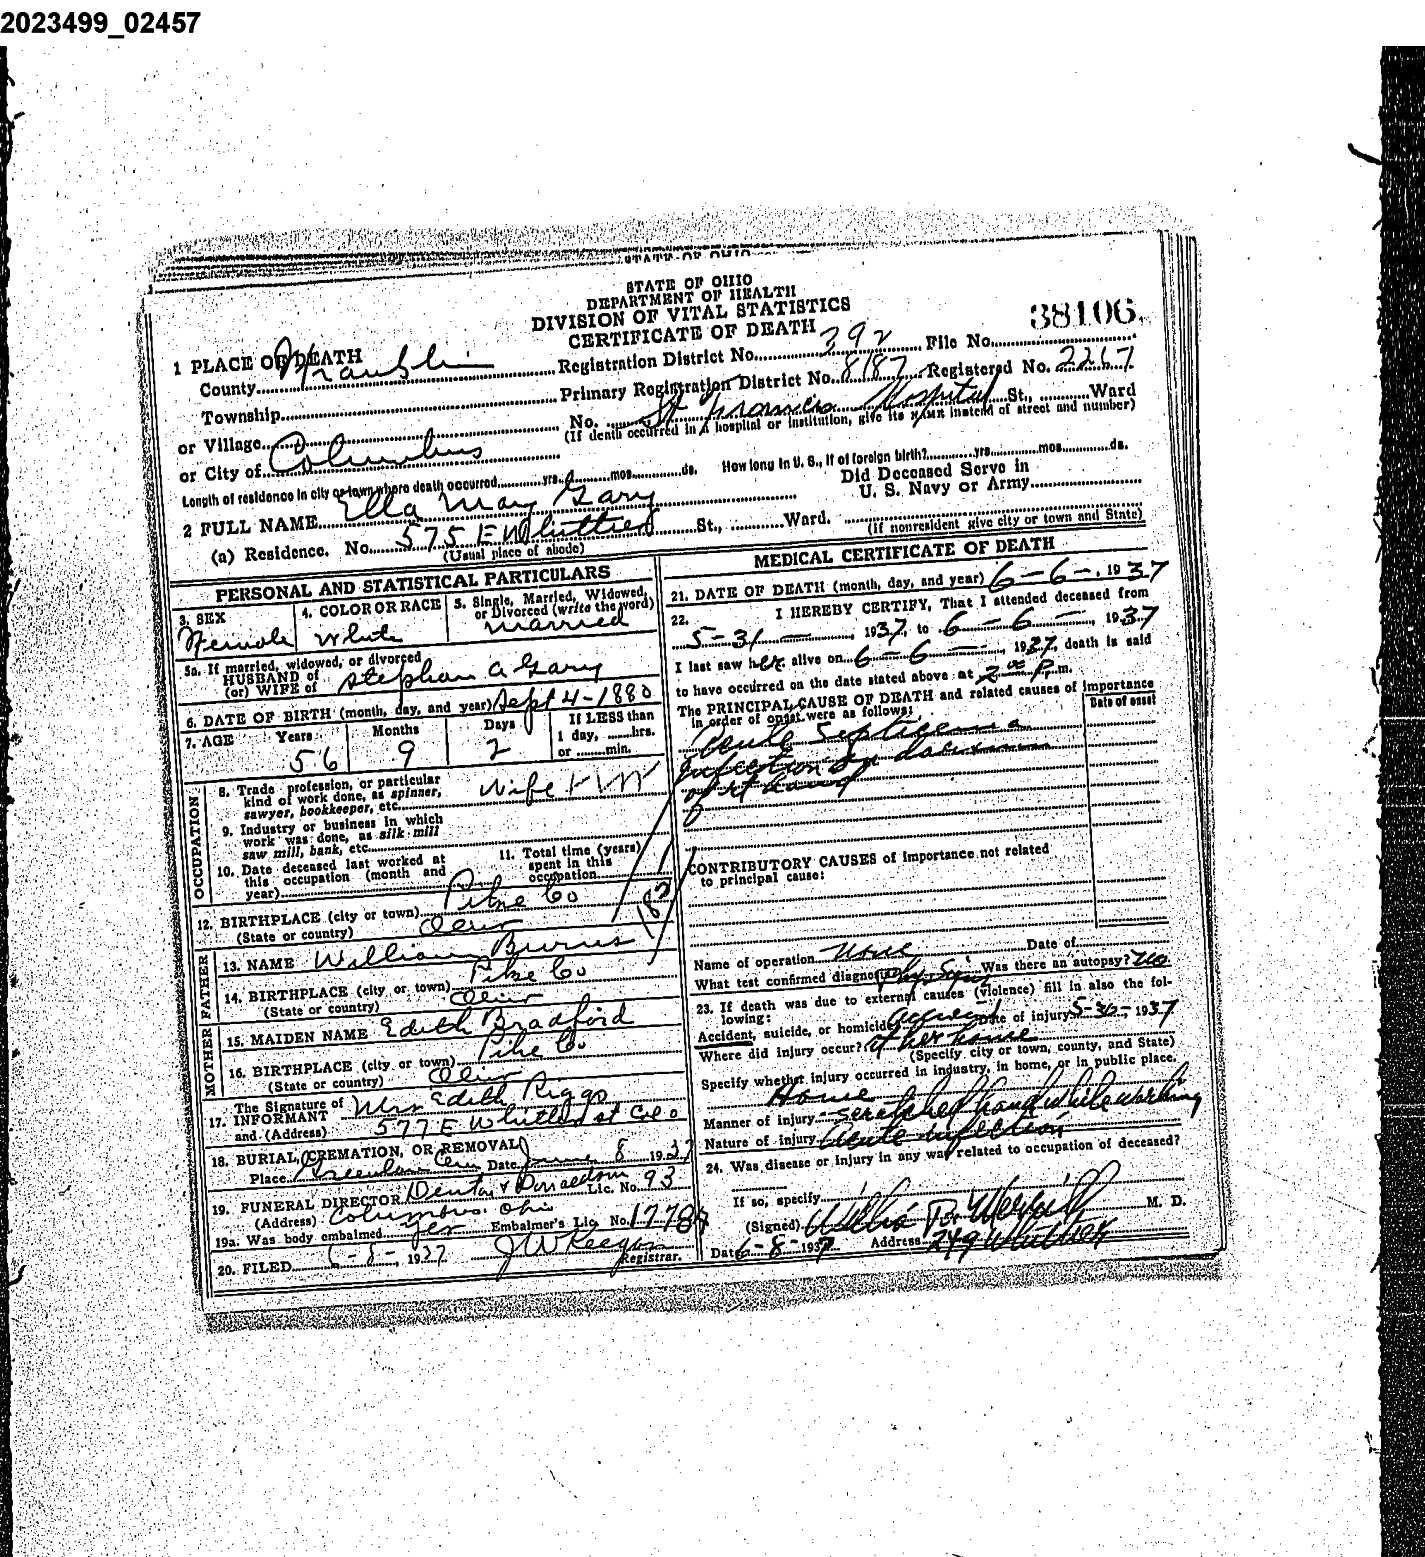 2023499_02457
STATE OF OHIO
STATE OF OHIO
DEPARTMENT OF HEALTH
DIVISION OF VITAL STATISTICS
CERTIFICATE OF DEATH
38106
1 PLACE OF DEATH
County Franklin Registration District No. 392 File No.
Township Primary Registration District No. 8187 Registered No. 2267
or Village No. St Francis Hospital St., Ward
(If death occurred in a hospital or institution, give its NAME instead of street and number)
or City of Columbus
Length of residence in city or town where death occurred yrs. mos. ds. How long in U. S., if of foreign birth? yrs. mos. ds.
2 FULL NAME Ella May Gary Did Deceased Serve in U. S. Navy or Army
(a) Residence. No. 575 E Whittier St., Ward.
(Usual place of abode) (If nonresident give city or town and State)
PERSONAL AND STATISTICAL PARTICULARS
3. SEX 4. COLOR OR RACE 5. Single, Married, Widowed, or Divorced (write the word)
Female White Married
5a. If married, widowed, or divorced
HUSBAND of
(or) WIFE of Stephan A Gary
6. DATE OF BIRTH (month, day, and year) Sept 4-1880
7. AGE Years Months Days If LESS than
1 day, hrs.
56 9 2 or min.
OCCUPATION
8. Trade profession, or particular
kind of work done, as spinner,
sawyer, bookkeeper, etc. Wife
9. Industry or business in which
work was done, as silk mill
saw mill, bank, etc.
10. Date deceased last worked at
this occupation (month and
year)
11. Total time (years)
spent in this
occupation
12. BIRTHPLACE (city or town) Pike Co
(State or country) Ohio
FATHER
13. NAME William Burns
14. BIRTHPLACE (city or town) Pike Co
(State or country) Ohio
MOTHER
15. MAIDEN NAME Edith Bradford
16. BIRTHPLACE (city or town) Pike Co
(State or country) Ohio
17. The Signature of
INFORMANT Mrs Edith Riggs
and (Address) 577 E Whittier st Col o
18. BURIAL, CREMATION, OR REMOVAL
Place Greenlawn Cem Date June 8 1937
19. FUNERAL DIRECTOR Denton & Donaldson Lic. No. 93
(Address) Columbus Ohio
19a. Was body embalmed yes Embalmer's Lic. No. 1778
20. FILED 6-8-, 1937 J W Keegan
Registrar.
MEDICAL CERTIFICATE OF DEATH
21. DATE OF DEATH (month, day, and year) 6-6-, 1937
22. I HEREBY CERTIFY, That I attended deceased from
5-31-, 1937, to 6-6-, 1937
I last saw her alive on 6-6-, 1937, death is said
to have occurred on the date stated above at 2 00 P. m.
The PRINCIPAL CAUSE OF DEATH and related causes of importance
in order of onset were as follows:
Date of onset
Acute Septicemia
infection
of rt hand
CONTRIBUTORY CAUSES of importance not related
to principal cause:
Name of operation None Date of
What test confirmed diagnosis? Phy Sign Was there an autopsy? No
23. If death was due to external causes (violence) fill in also the fol-
lowing:
Accident, suicide, or homicide? Accident Date of injury 5-30-, 1937
Where did injury occur? At her home
(Specify city or town, county, and State)
Specify whether injury occurred in industry, in home, or in public place.
Home
Manner of injury scratched hand while working
Nature of injury Acute infection
24. Was disease or injury in any way related to occupation of deceased?
If so, specify
(Signed) M. D.
Date 6-8-1937 Address 249 Whittier